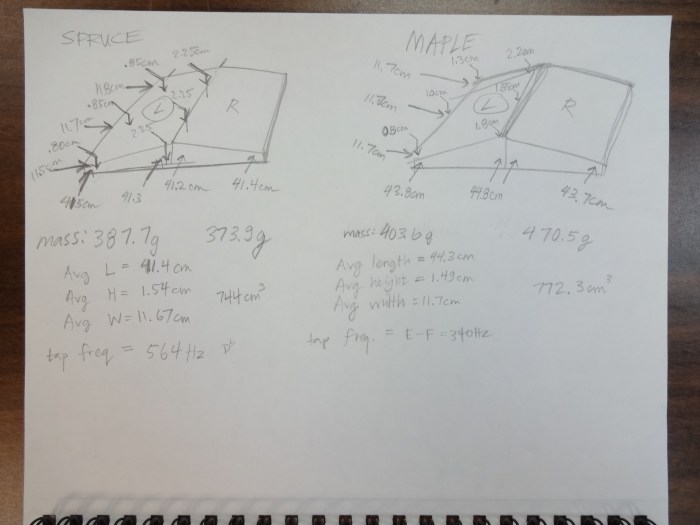 SPRUCE
.85cm
2.25cm
11.8cm
.85cm
2.25
L
R
11.7cm
2.25
.80cm
11.5cm
41.3
41.2cm
41.4cm
mass: 387.7g
373.9g
Avg L = 41.4cm
Avg H = 1.54cm
744cm³
Avg W = 11.67cm
tap freq = 564Hz
MAPLE
1.3cm
2.2cm
11.7cm
1.85cm
L
R
1.8cm
0.8cm
11.7cm
43.8cm
44.3cm
43.7cm
mass: 403.6g
470.5g
Avg length = 44.3cm
Avg height = 1.49cm
772.3cm³
Avg width = 11.7cm
tap freq. = E-F = 340Hz